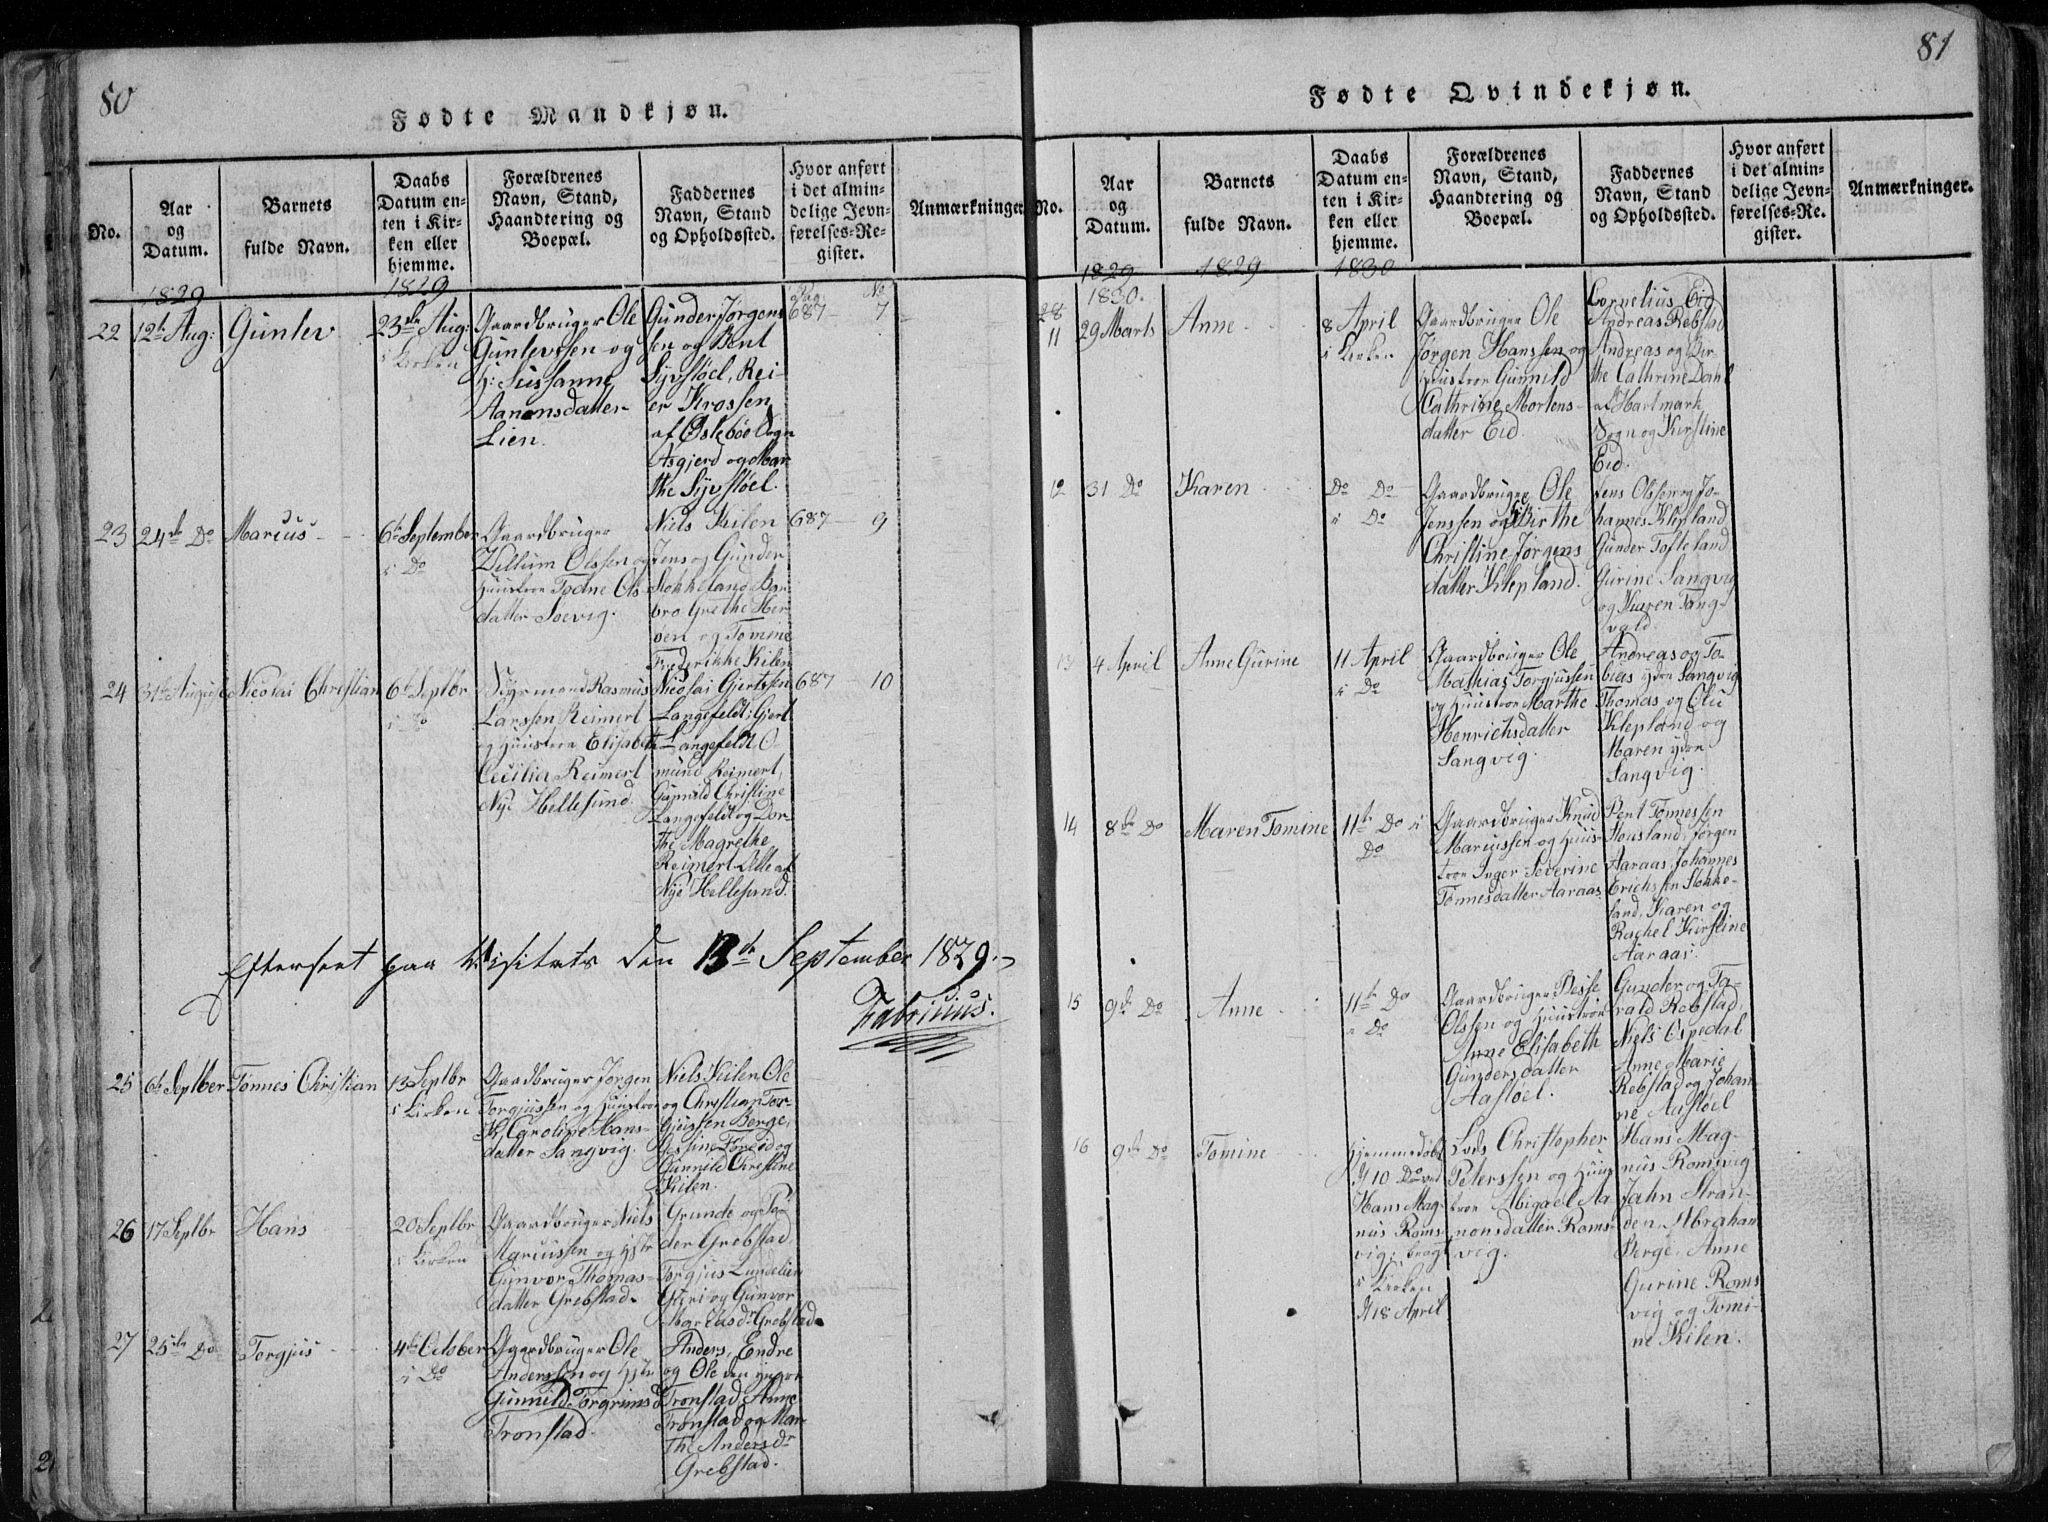 80
Fødte Mandkjøn.
No.
Aar
og
Datum.
Barnets
fulde Navn.
Daabs
Datum en-
ten i Kir-
ken eller
hjemme.
Forældrenes
Navn, Stand,
Haandtering og
Boepæl.
Faddernes
Navn, Stand
og Opholdssted.
Hvor anført
i det almin-
delige Jevn-
førelses-Re-
gister.
Anmærkninger
1829
1829
Pag:
No
22
12te Aug:
Gunlev
23de Aug:
i Kirken
Gaardbruger Ole
Gunlevssen og
H: Sussanne
Aanonsdatter
Lien.
Gunder Jørgens
sen og Bent
Syvstøel, Rei-
er Krossen
af Øslebøe Sogn
Asgjerd og Mar
the Syvstøel.
687
7
23
24de Do
Marcus
6te September
i Do
Gaardbruger
Villum Olssen og
Huustroe Todne Ols
datter Soevig.
Niels Kilen
Jens og Gunder
Stokkeland Bar
bro Grethe Her
øen og Tomine
Frederikke Kilen
687
9
24
31te August
Nicolai Christian
6te Septbr
i Do
Styrmand Rasmus
Larssen Reimert
og Huustroe Elisabeth
Cecilia Reimert
Nye Hellesund.
Nicolai Gjertssen
Langefeldt; Gjert
Langefeldt O-
mund Reimert,
Gunnild Christine
Langefeldt og Dor-
the Magrethe
Reimert Alle af
Nye Hellesund.
687
10
Efterseet paa Visitats den 13de September 1829.
Fabricius.
25
6te Septber
Tønnes Christian
13 Septbr
i Kirken
Gaardbruger Jørgen
Torgjussen og Huustroe
K. Caroline Hans-
datter Sangvig.
Niels Kilen Ole
og Christian Tor-
gjussen Berge,
Gunnild Christine
Kilen.
26
17 Septbr
Hans
20 Septbr
i Kirken
Gaardbruger Niels
Marcussen og Hstr
Gunvor Thomas-
datter Grebstad.
Grunde og To-
der Grebstad
Torgjus Lundelien
Guri og Gunvor
Marcusdr Grebstad.
27
25de Do
Torgjus
4de October
i Do
Gaardbruger Ole
Anderssen og Hstr
Gunnild Torgrimsd
Tronstad.
Anders, Endre
og Ole den yngre
Tronstad, Anne
Tronstad og Mar
the Andersdr
Grebstad.
81
Fødte Qvindekjøn.
No.
Aar
og
Datum.
Barnets
fulde Navn.
Daabs
Datum en-
ten i Kir-
ken eller
hjemme.
Forældrenes
Navn, Stand,
Haandtering og
Boepæl.
Faddernes
Navn, Stand
og Opholdssted.
Hvor anført
i det almin-
delige Jevn-
førelses-Re-
gister.
Anmærkninger.
1829
1829
1830
1830.
28
11
29 Marts
Anne
8 April
i Kirken
Gaardbruger Ole
Jørgen Hanssen og
Huustroe Gunnild
Cathrine Mortens-
datter Eid.
Cornelius Eid
Andreas Rebstad
Andreas og Bir-
the Cathrine Dahl
af Hartmark
Sogn og Kirstine
Eid.
12
31 Do
Karen
Do Do
i Do
Gaardbruger Ole
Jenssen og Birthe
Christine Jørgens
datter Klepland.
Jens Olssen og Jo-
hannes Klepland
Gunder Tofteland
Gurine Sangvig
og Karen Tang-
vald.
13
4 April
Anne Gurine
11 April
i Do
Gaardbruger Ole
Mathias Torgjussen
og Huustroe Marthe
Henrichsdatter
Sangvig.
Andreas og To-
bias ydre Sangvig
Thomas og Olu
Klepland og
Maren ydre
Sangvig.
14
8de Do
Maren Tomine
11te Do i
Do
Gaardbruger Knud
Marcussen og Huus-
troe Inger Severine
Tønnesdatter Aaraas
Bent Tønnessen
Stousland, Jørgen
Aaraas, Johannes
Erichssen Stokke-
land, Karen og
Rachel Kirstine
Aaraas.
15
9de Do
Anne
11te Do
i Do
Gaardbruger Besse
Olssen og Huustroe
Anne Elisabeth
Gundersdatter
Aastøel.
Gunder og To-
vald Rebstad,
Niels Espedal
Anne Marie
Rebstad og Johan
ne Aastøel
16
9de Do
Tomine
Hjemmedøbt
d 10 Do ved
Hans Mag-
nus Roms
vig; bragt
i Kirken
d 18 April
Lods Christopher
Peterssen og Huus
troe Abigael Aa
nonsdatter Roms-
vig.
Hans Mag-
nus Romsvig
Jahn Stran-
den, Abraham
Berge, Anne
Gurine Roms
vig og Tomi-
ne Kilen.